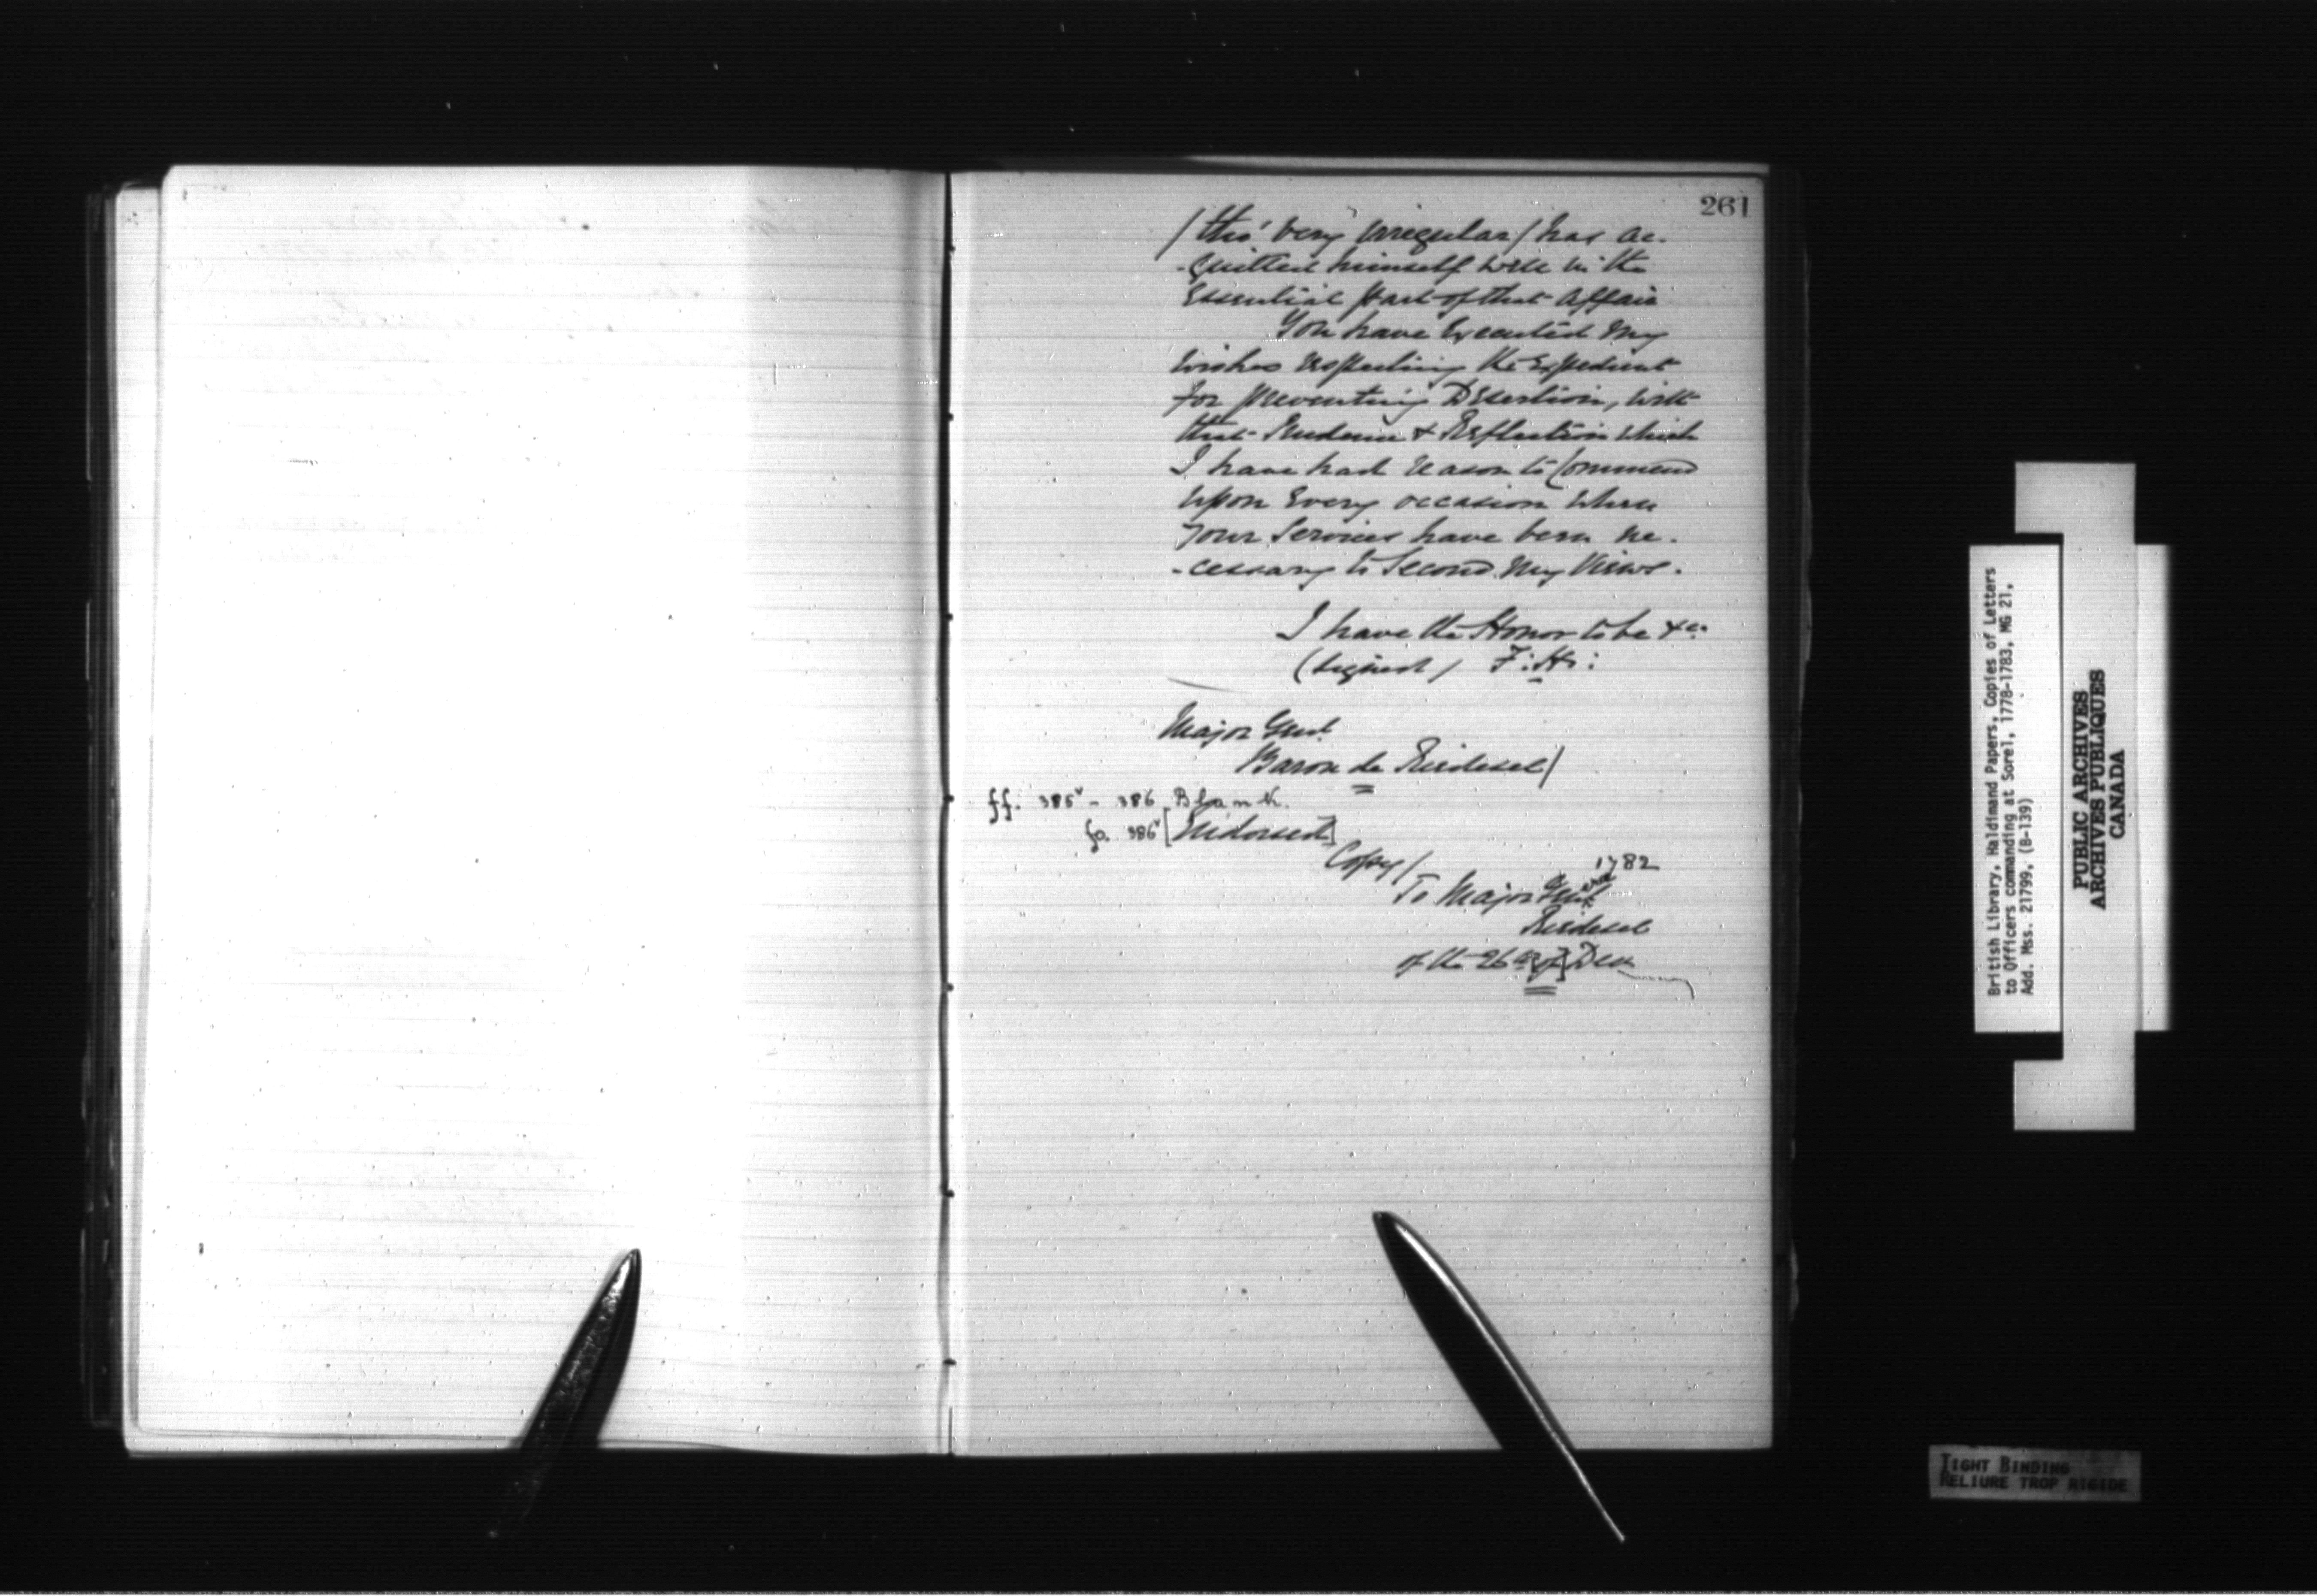 261
/tho' very irregular/ has ac-
-quitted himself well in the
Essential part of that affair
You have Executed my
wishes respecting the Expedient
for preventing Desertion, with
that Prudence & Reflection which
I have had reason to Commend
upon Every occasion where
your Services have been ne-
-cessary to Second my Views.
I have the Honor to be &ca
(signed) F: H:
Major Genl.
Baron de Riedesel/
ff. 385v - 386 Blank.
fo. 386v [Endorsed]
Copy/
1782
To Major General
Riedesel
of the 26th [of] Decr
British Library, Haldimand Papers, Copies of Letters
to Officers commanding at Sorel, 1778-1783, MG 21,
Add. Mss. 21799, (B-139)
PUBLIC ARCHIVES
ARCHIVES PUBLIQUES
CANADA
TIGHT BINDING
RELIURE TROP RIGIDE